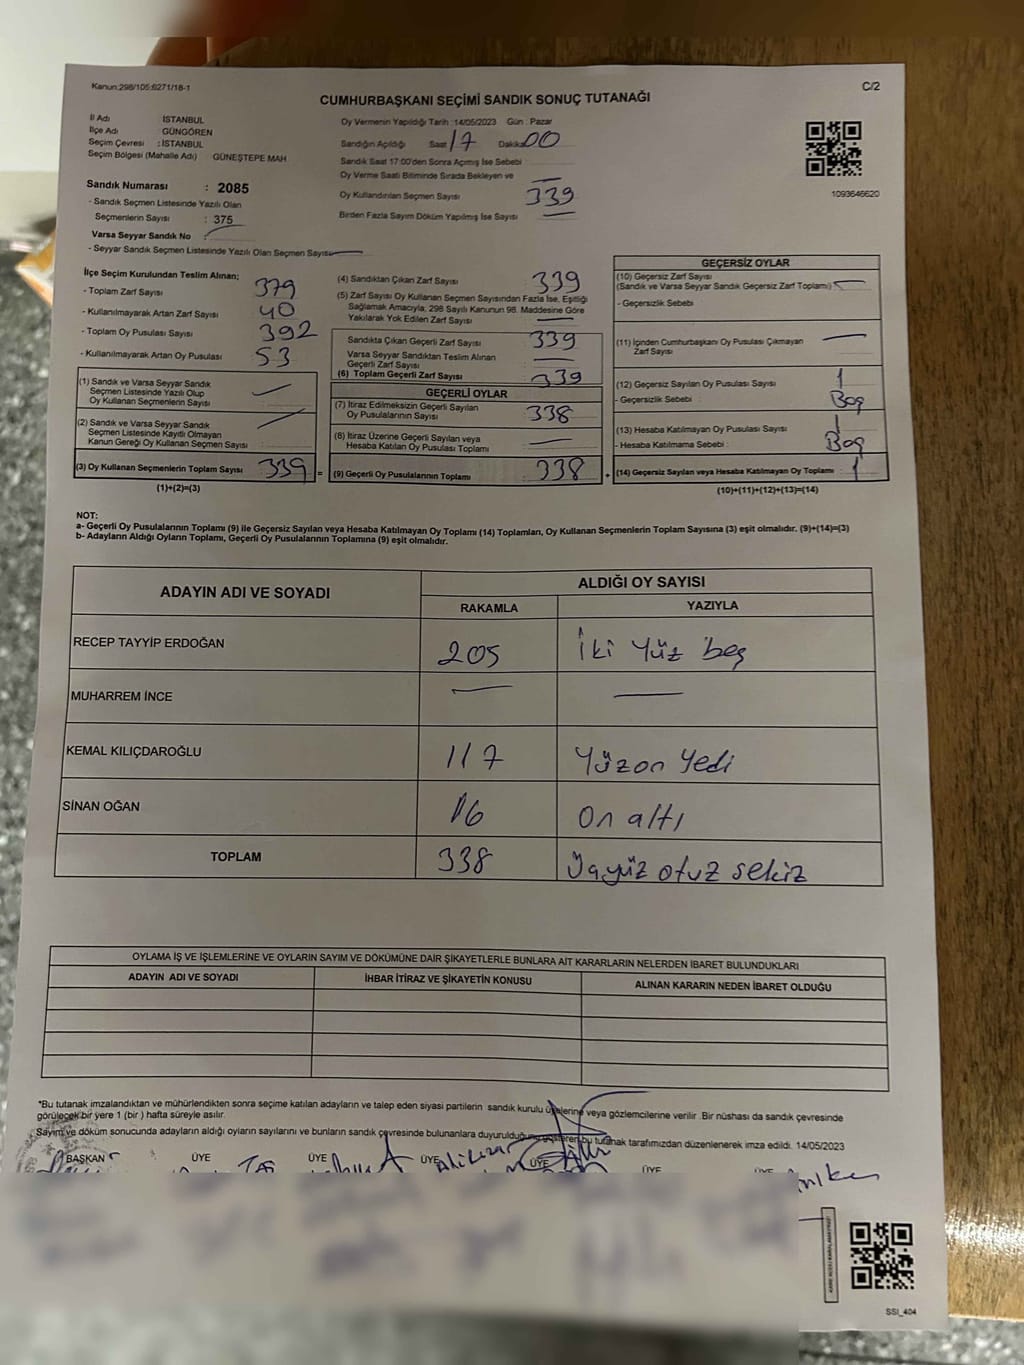 Kanun:298/105:6271/18-1
C/2
CUMHURBAŞKANI SEÇİMİ SANDIK SONUÇ TUTANAĞI
İl Adı İSTANBUL
İlçe Adı GÜNGÖREN
Seçim Çevresi : İSTANBUL
Seçim Bölgesi (Mahalle Adı) GÜNEŞTEPE MAH
Sandık Numarası : 2085
- Sandık Seçmen Listesinde Yazılı Olan
Seçmenlerin Sayısı : 375
Varsa Seyyar Sandık No :
- Seyyar Sandık Seçmen Listesinde Yazılı Olan Seçmen Sayısı
Oy Vermenin Yapıldığı Tarih :14/05/2023 Gün : Pazar
Sandığın Açıldığı Saat 17 Dakika 00
Sandık Saat 17:00'den Sonra Açımış İse Sebebi
Oy Verme Saati Bitiminde Sırada Bekleyen ve
Oy Kullandırılan Seçmen Sayısı 339
Birden Fazla Sayım Döküm Yapılmış İse Sayısı
1093646620
İlçe Seçim Kurulundan Teslim Alınan;
- Toplam Zarf Sayısı 379
- Kullanılmayarak Artan Zarf Sayısı 40
- Toplam Oy Pusulası Sayısı 392
- Kullanılmayarak Artan Oy Pusulası 53
(1) Sandık ve Varsa Seyyar Sandık
Seçmen Listesinde Yazılı Olup
Oy Kullanan Seçmenlerin Sayısı
(2) Sandık ve Varsa Seyyar Sandık
Seçmen Listesinde Kayıtlı Olmayan
Kanun Gereği Oy Kullanan Seçmen Sayısı
(3) Oy Kullanan Seçmenlerin Toplam Sayısı 339 =
(1)+(2)=(3)
(4) Sandıktan Çıkan Zarf Sayısı 339
(5) Zarf Sayısı Oy Kullanan Seçmen Sayısından Fazla İse, Eşitliği
Sağlamak Amacıyla, 298 Sayılı Kanunun 98. Maddesine Göre
Yakılarak Yok Edilen Zarf Sayısı
Sandıkta Çıkan Geçerli Zarf Sayısı 339
Varsa Seyyar Sandıktan Teslim Alınan
Geçerli Zarf Sayısı
(6) Toplam Geçerli Zarf Sayısı 339
GEÇERLİ OYLAR
(7) İtiraz Edilmeksizin Geçerli Sayılan
Oy Pusulalarının Sayısı 338
(8) İtiraz Üzerine Geçerli Sayılan veya
Hesaba Katılan Oy Pusulası Toplamı
(9) Geçerli Oy Pusulalarının Toplamı 338 +
GEÇERSİZ OYLAR
(10) Geçersiz Zarf Sayısı
(Sandık ve Varsa Seyyar Sandık Geçersiz Zarf Toplamı)
- Geçersizlik Sebebi
(11) İçinden Cumhurbaşkanı Oy Pusulası Çıkmayan
Zarf Sayısı
(12) Geçersiz Sayılan Oy Pusulası Sayısı 1
- Geçersizlik Sebebi : Boş
(13) Hesaba Katılmayan Oy Pusulası Sayısı 1
- Hesaba Katılmama Sebebi : Boş
(14) Geçersiz Sayılan veya Hesaba Katılmayan Oy Toplamı 1
(10)+(11)+(12)+(13)=(14)
NOT:
a- Geçerli Oy Pusulalarının Toplamı (9) ile Geçersiz Sayılan veya Hesaba Katılmayan Oy Toplamı (14) Toplamları, Oy Kullanan Seçmenlerin Toplam Sayısına (3) eşit olmalıdır. (9)+(14)=(3)
b- Adayların Aldığı Oyların Toplamı, Geçerli Oy Pusulalarının Toplamına (9) eşit olmalıdır.
ADAYIN ADI VE SOYADI ALDIĞI OY SAYISI
RAKAMLA YAZIYLA
RECEP TAYYİP ERDOĞAN 205 İki Yüz beş
MUHARREM İNCE
KEMAL KILIÇDAROĞLU 117 Yüzon Yedi
SİNAN OĞAN 16 On altı
TOPLAM 338 Üçyüz otuz sekiz
OYLAMA İŞ VE İŞLEMLERİNE VE OYLARIN SAYIM VE DÖKÜMÜNE DAİR ŞİKAYETLERLE BUNLARA AİT KARARLARIN NELERDEN İBARET BULUNDUKLARI
ADAYIN ADI VE SOYADI İHBAR İTİRAZ VE ŞİKAYETİN KONUSU ALINAN KARARIN NEDEN İBARET OLDUĞU
*Bu tutanak imzalandıktan ve mühürlendikten sonra seçime katılan adayların ve talep eden siyasi partilerin sandık kurulu üyelerine veya gözlemcilerine verilir. Bir nüshası da sandık çevresinde
görülecek bir yere 1 (bir) hafta süreyle asılır.
Sayım ve döküm sonucunda adayların aldığı oyların sayılarını ve bunların sandık çevresinde bulunanlara duyurulduğunu gösteren bu tutanak tarafımızdan düzenlenerek imza edildi. 14/05/2023
BAŞKAN ÜYE ÜYE ÜYE ÜYE ÜYE ÜYE
SSI_404